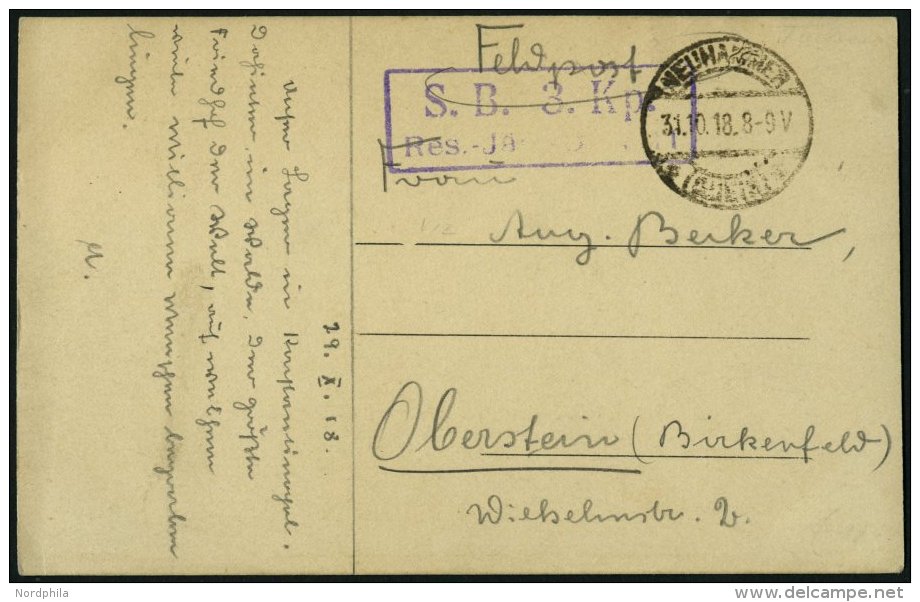 Feldpost
S. B. 3. Kp.
Res.-Jä
NEUHAMMER
31.10.18. 8-9 V
(QUEIS)
Frau
Aug. Becker,
Oberstein (Birkenfeld)
Wilhelmstr. 2.
29. X. 18.
Unser Lager in Konstantinopel.
Dahinter im Walde, der größte
Friedhof der Welt, auf welchem
viele Millionen Menschen begraben
liegen.
M.
Nordphila
delcampe.net